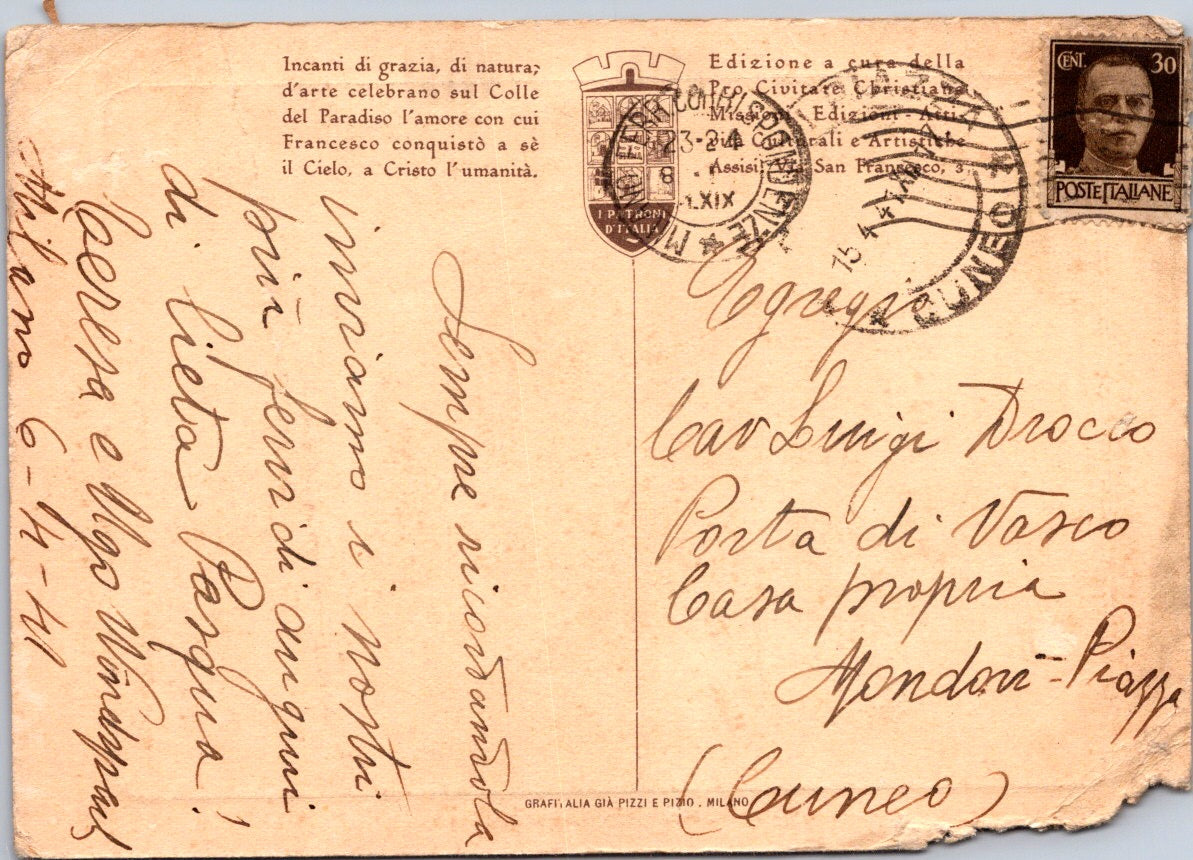 Incanti di grazia, di natura,
d'arte celebrano sul Colle
del Paradiso l'amore con cui
Francesco conquistò a sè
il Cielo, a Cristo l'umanità.
I PATRONI
D'ITALIA
Edizione a cura della
Pro Civitate Christiana
Missioni - Edizioni - Atti-
vità Culturali e Artistiche
Assisi San Francesco, 3
CENT. 30
POSTE ITALIANE
CORRISPONDENZE
23-24
8
XIX
15 4 41
CUNEO
Sempre ricordandola
inviamo i nostri
più fervidi auguri
di lieta Pasqua!
e Ugo
Milano 6-4-41
Egregio
Cav Luigi Drocco
Porta di Vasco
Casa propria
Mondovi-Piazza
(Cuneo)
GRAFITALIA GIÀ PIZZI E PIZIO . MILANO